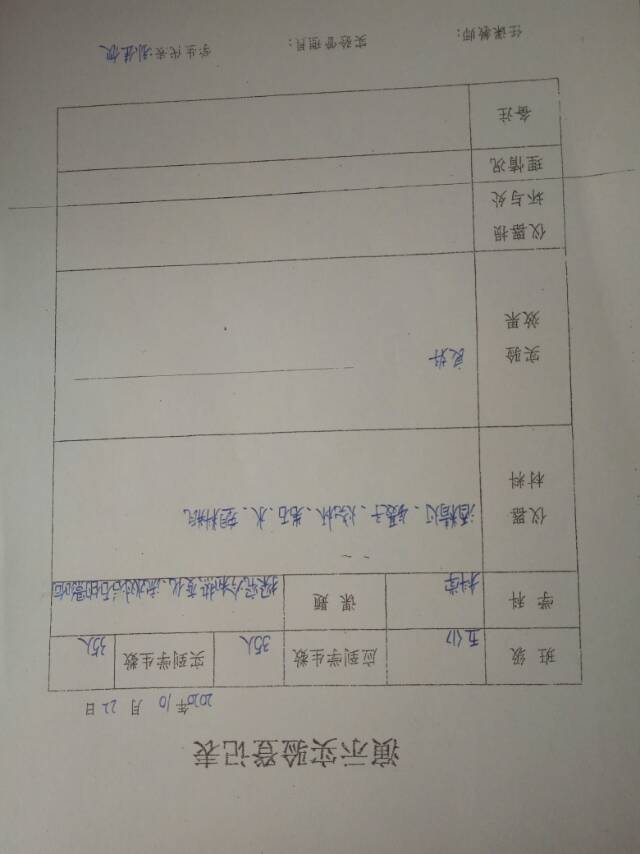 演示实验登记表
2020年10月22日
班级 五(1) 应到学生数 35人 实到学生数 35人
学科 科学 课题 探究冷和热变化、流水对岩石的影响
仪器 酒精灯、镊子、烧杯、岩石、水、塑料瓶
材料
实验 良好
效果
仪器损
坏与处
理情况
备注
任课教师： 实验管理员： 学生代表：